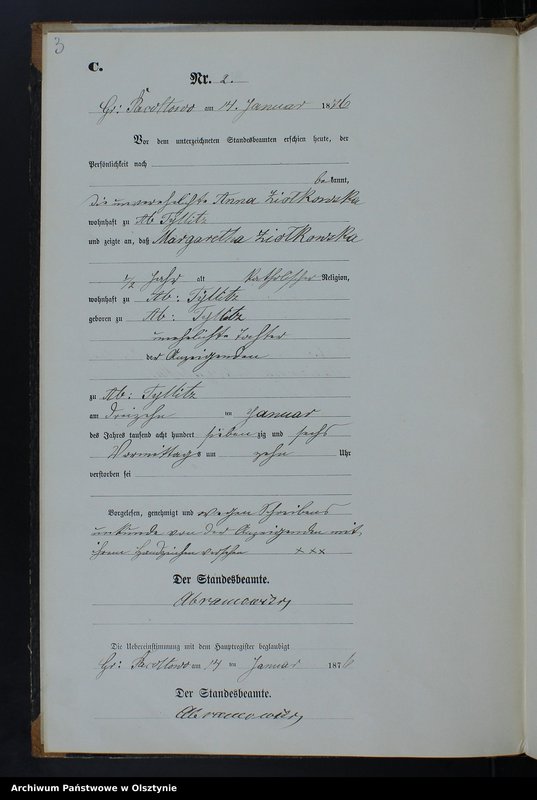 3
C.
Nr. 2.
Gr: Pacoltowo am 14. Januar 1876
Vor dem unterzeichneten Standesbeamten erschien heute, der
Persönlichkeit nach
bekannt,
die unverehelichte Anna Ziolkowska
wohnhaft zu Ab Tyllitz
und zeigte an, daß Margaretha Ziolkowska
1/2 Jahr alt katholischer Religion,
wohnhaft zu Ab: Tyllitz
geboren zu Ab: Tyllitz
unehelichte Tochter
der Anzeigenden
zu Ab: Tyllitz
am dreizehn ten Januar
des Jahres tausend acht hundert sieben zig und sechs
Vormittags um zehn Uhr
verstorben sei
Vorgelesen, genehmigt und wegen Schreibens
unkunde von der Anzeigenden mit
ihrem Handzeichen versehen +++
Der Standesbeamte.
Abramowski
Die Uebereinstimmung mit dem Hauptregister beglaubigt
Gr: Pacoltowo am 14 ten Januar 1876
Der Standesbeamte.
Abramowski
Archiwum Państwowe w Olsztynie